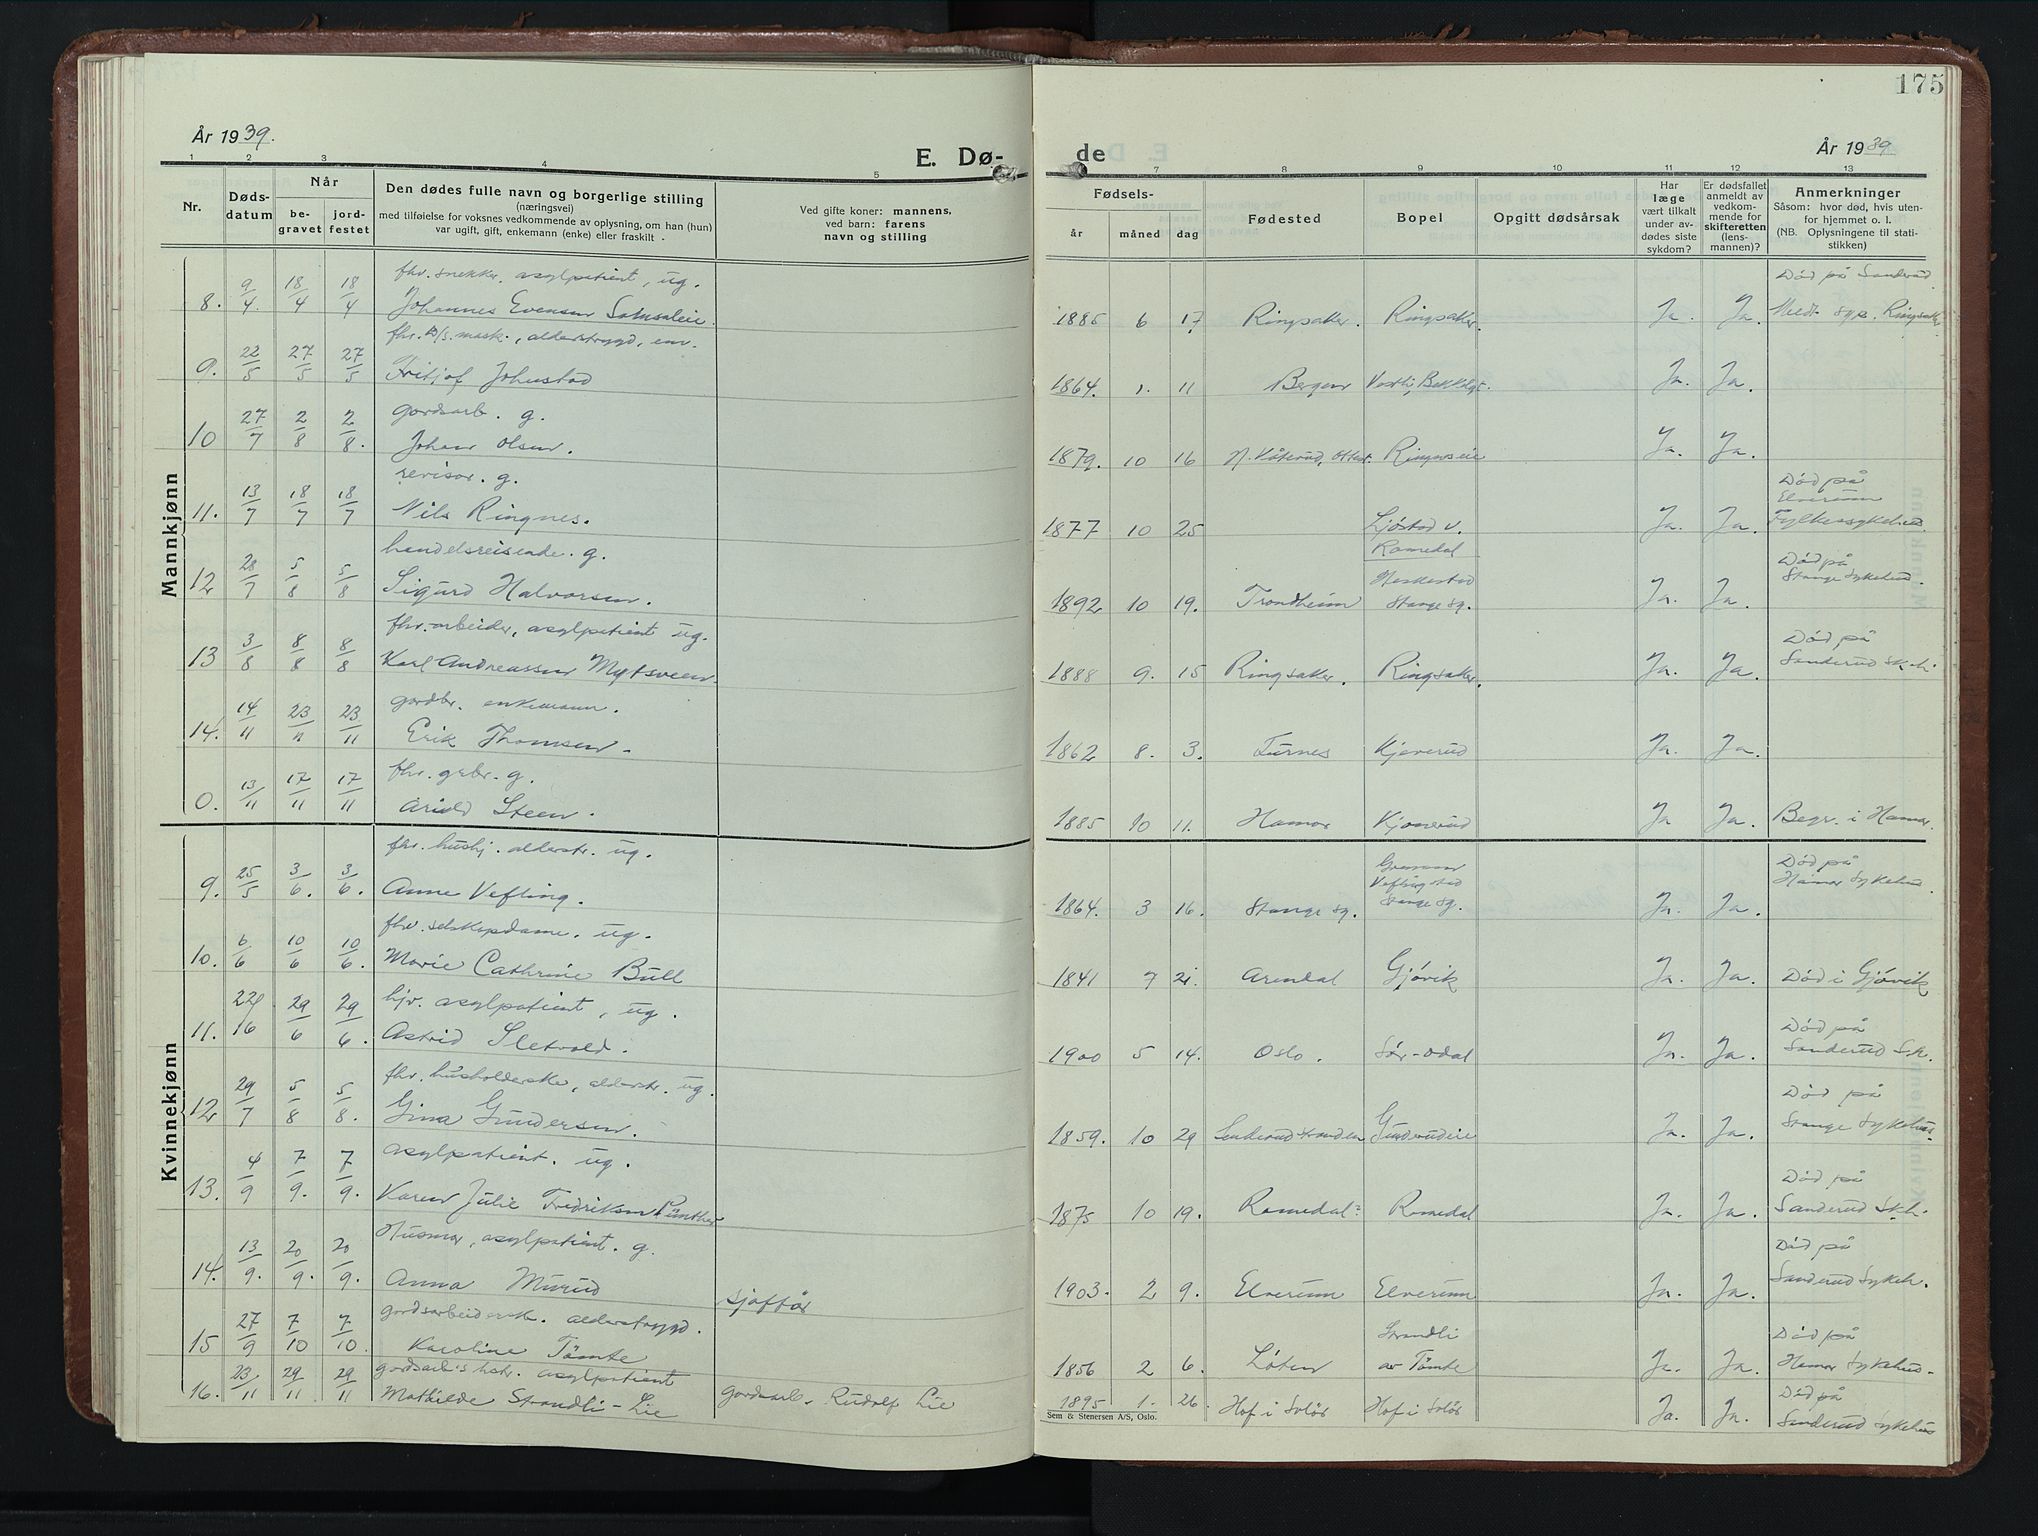 175
År 1939.
E. Dø-
de
År 1939
1 2 3 4 5
7 8 9 10 11 12 13
Nr.
Døds-
datum
Når
be-
gravet
jord-
festet
Den dødes fulle navn og borgerlige stilling
(næringsvei)
med tilføielse for voksnes vedkommende av oplysning, om han (hun)
var ugift, gift, enkemann (enke) eller fraskilt.
Ved gifte koner: mannens,
ved barn: farens
navn og stilling
Fødsels-
år måned dag
Fødested
Bopel
Opgitt dødsårsak
Har
læge
vært tilkalt
under av-
dødes siste
sykdom?
Er dødsfallet
anmeldt av
vedkom-
mende for
skifteretten
(lens-
mannen)?
Anmerkninger
Såsom: hvor død, hvis uten-
for hjemmet o. l.
(NB. Oplysningene til stati-
stikken)
Mannkjønn
fhv. snekker, asylpatient, ug. Død på Sanderud
8. 9/4. 18/4 18/4 Johannes Evensen 1885 6 17 Ringsaker. Ringsaker. Ja. Ja. Ringsaker
alderstrygd, em.
9. 22/5 27/5 27/5 Fritjof Johnstad 1864. 1. 11 Bergen Ja. Ja.
gårdsarb. g.
10 27/7 2/8 2/8. Johan Olsen. 1879. 10 16 Ringneseie Ja. Ja.
revisor. g. Død på
Elverum
11. 13/7 18/7 18/7 Nils Ringnes. 1877 10 25 Ljøstad v. Ja. Ja. Fylkessykehus
handelsreisende. g. Romedal
Død på
12 28/7 5/8 5/8 Sigurd Halvorsen. 1892 10 19. Trondheim Stange sg. Ja. Ja. Stange Sykehus.
fhv. arbeider, asylpatient ug. Død på
13 3/8 8/8 8/8 Karl Andreassen Mytsveen 1888 9. 15 Ringsaker. Ringsaker. Ja. Ja. Sanderud sk.h.
gårdbr. enkemann.
14. 14/11 23/11 23/11 Erik Thomsen. 1862 8. 3. Furnes Kjeverud Ja. Ja.
fhv. grbr. g.
0. 13/11 17/11 17/11 Arild Steen. 1885 10 11. Hamar Kjonerud Ja Ja. Begr. i Hamar.
Kvinnekjønn
fhv. hushj. alderstr. ug. Død på
9. 25/5 3/6. 3/6. Anne Vefling. 1864. 3 16. Stange sg. Stange sg. Ja. Ja. Hamar Sykehus.
fhv. selskapsdame. ug.
10. 6/6 10/6 10/6. Marie Cathrine Bull 1841 7 21. Arendal Gjøvik Ja. Ja. Død i Gjøvik
hjv. asylpatient, ug. Død på
11. 22/6 29/6 29/6. Astrid Sletvold. 1900 5 14. Oslo. Sør-Odal Ja. Ja. Sanderud S.h.
fhv. husholderske, alderstr. ug. Død på
12 29/7 5/8 5/8. Gina Gundersen. 1859. 10 29 Gunderudeie Ja. Ja. Stange Sykehus.
asylpatient. ug. Død på
13. 4/9 7/9. 7/9. Karen Julie Fredriksen Günther 1875 10 19. Romedal? Romedal Ja. Ja. Sanderud Sk.h.
Husmor, asylpatient. g. Død på
14. 13/9. 20/9. 20/9. Anna Murud sjåffør 1903. 2 9. Elverum Elverum Ja. Ja. Sanderud Sykeh.
gårdsarbeiderske. alderstrygd. Strandli Død på
15 27/9 7/10 7/10. Karoline Tømte 1856 2 6. Løten av Tømte Ja. Ja. Hamar Sykehus.
gårdsarb's hstr. asylpatient Død på
16. 23/11 29/11 29/11 Mathilde Strandli-Lie gårdsarb. Rudolf Lie 1895 1. 26. Hof i Solør Hof i Solør Ja. Ja. Sanderud sykehus
Sem & Stenersen A/S, Oslo.